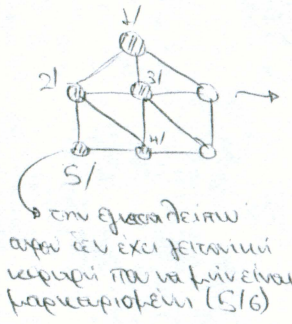 1/
2/
3/
4/
5/
την εγκαταλείπω
αφού δεν έχει γειτονική
κορυφή που να μην είναι
μαρκαρισμένη (5/6)